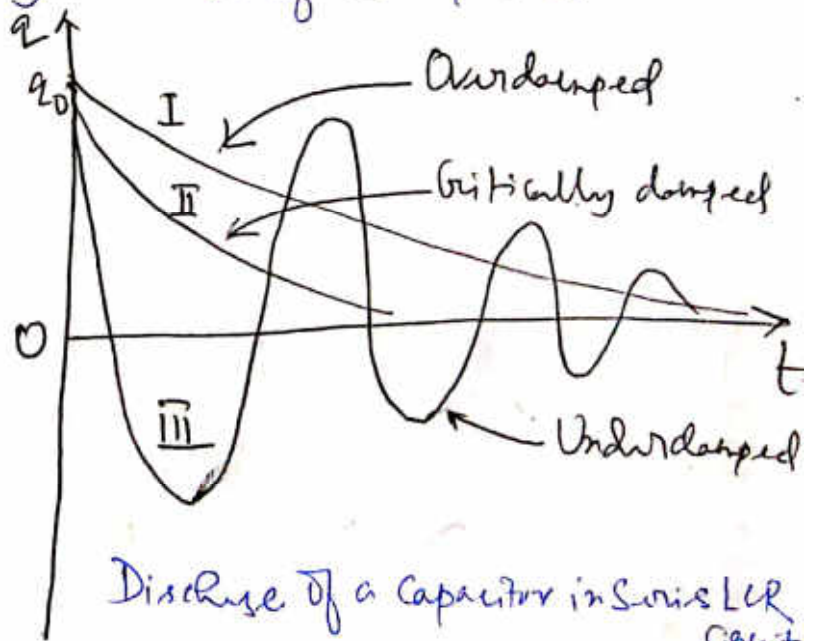 q
q₀
I
Overdamped
II
Critically damped
O
t
III
Underdamped
Discharge of a Capacitor in Series LCR
Circuit